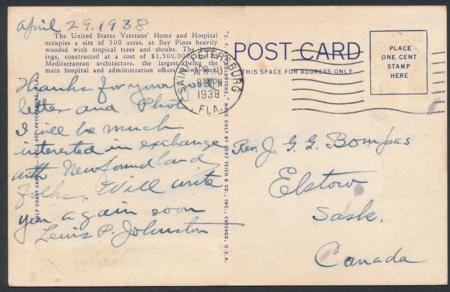 April 29, 1938
The United States Veterans' Home and Hospital
occupies a site of 500 acres, at Bay Pines heavily
wooded with tropical trees and shrubs. The
ings, constructed at a cost of $1,500,000
Mediterranean architecture, the largest being the
main hospital and administration offices
Thanks for your good
letter and Photo
I will be much
interested in exchange
with Newfoundland
Folks. Will write
you again soon
Lewis P. Johnston
POST CARD
THIS SPACE FOR ADDRESS ONLY
PLACE
ONE CENT
STAMP
HERE
SAINT PETERSBURG
1938
FLA.
Rev. J. G. G. Bompas
Elstow
Sask.
Canada